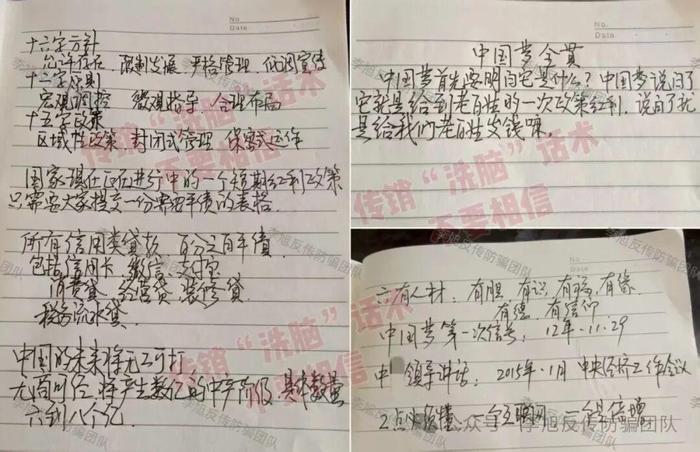 No.
Date
十六字方针
允许存在 限制发展 严格管理 低调宣传
十二字原则
宏观调控 微观指导 合理布局
十五字政策
区域性政策 封闭式管理 保密式运作
国家现在正在进行中的一个短期红利政策
只需要大家提交一份需要平债的表格
所有信用类贷款 百分之百平债
包括信用卡 微信 支付宝
消费贷 经营贷 装修贷
税务流水贷
中国的未来将无工可打
九商可经 将产生数亿的中产阶级 具体数量
六到八个亿
传销“洗脑”话术
不要相信
李旭反传防骗团队
No.
Date
中国梦全贯
中国梦首先要明白它是什么？中国梦说白了
它就是给到老百姓的一次政策红利，说白了就
是给我们老百姓发钱嘛。
传销“洗脑”话术
不要相信
李旭反传防骗团队
No.
Date
六有人材：有胆 有识 有福 有缘
有德 有信仰
中国梦第一次信号：12年.11.29
中 领导讲话：2015年.1月 中央经济工作会议
2点 一个互联网 一个是倍增
传销“洗脑”话术
不要相信
公众号 李旭反传防骗团队